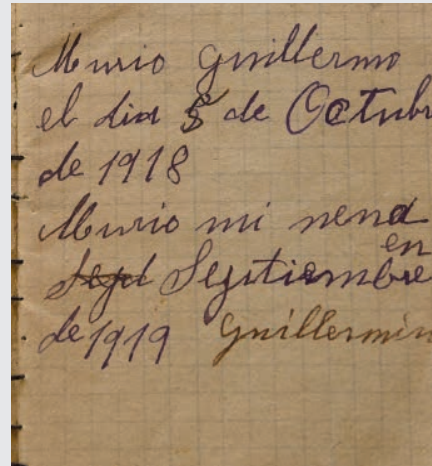 Murio Guillermo
el dia 8 de Octubr
de 1918
Murio mi nena
en
Sept Septiembre
de 1919 Guillermin